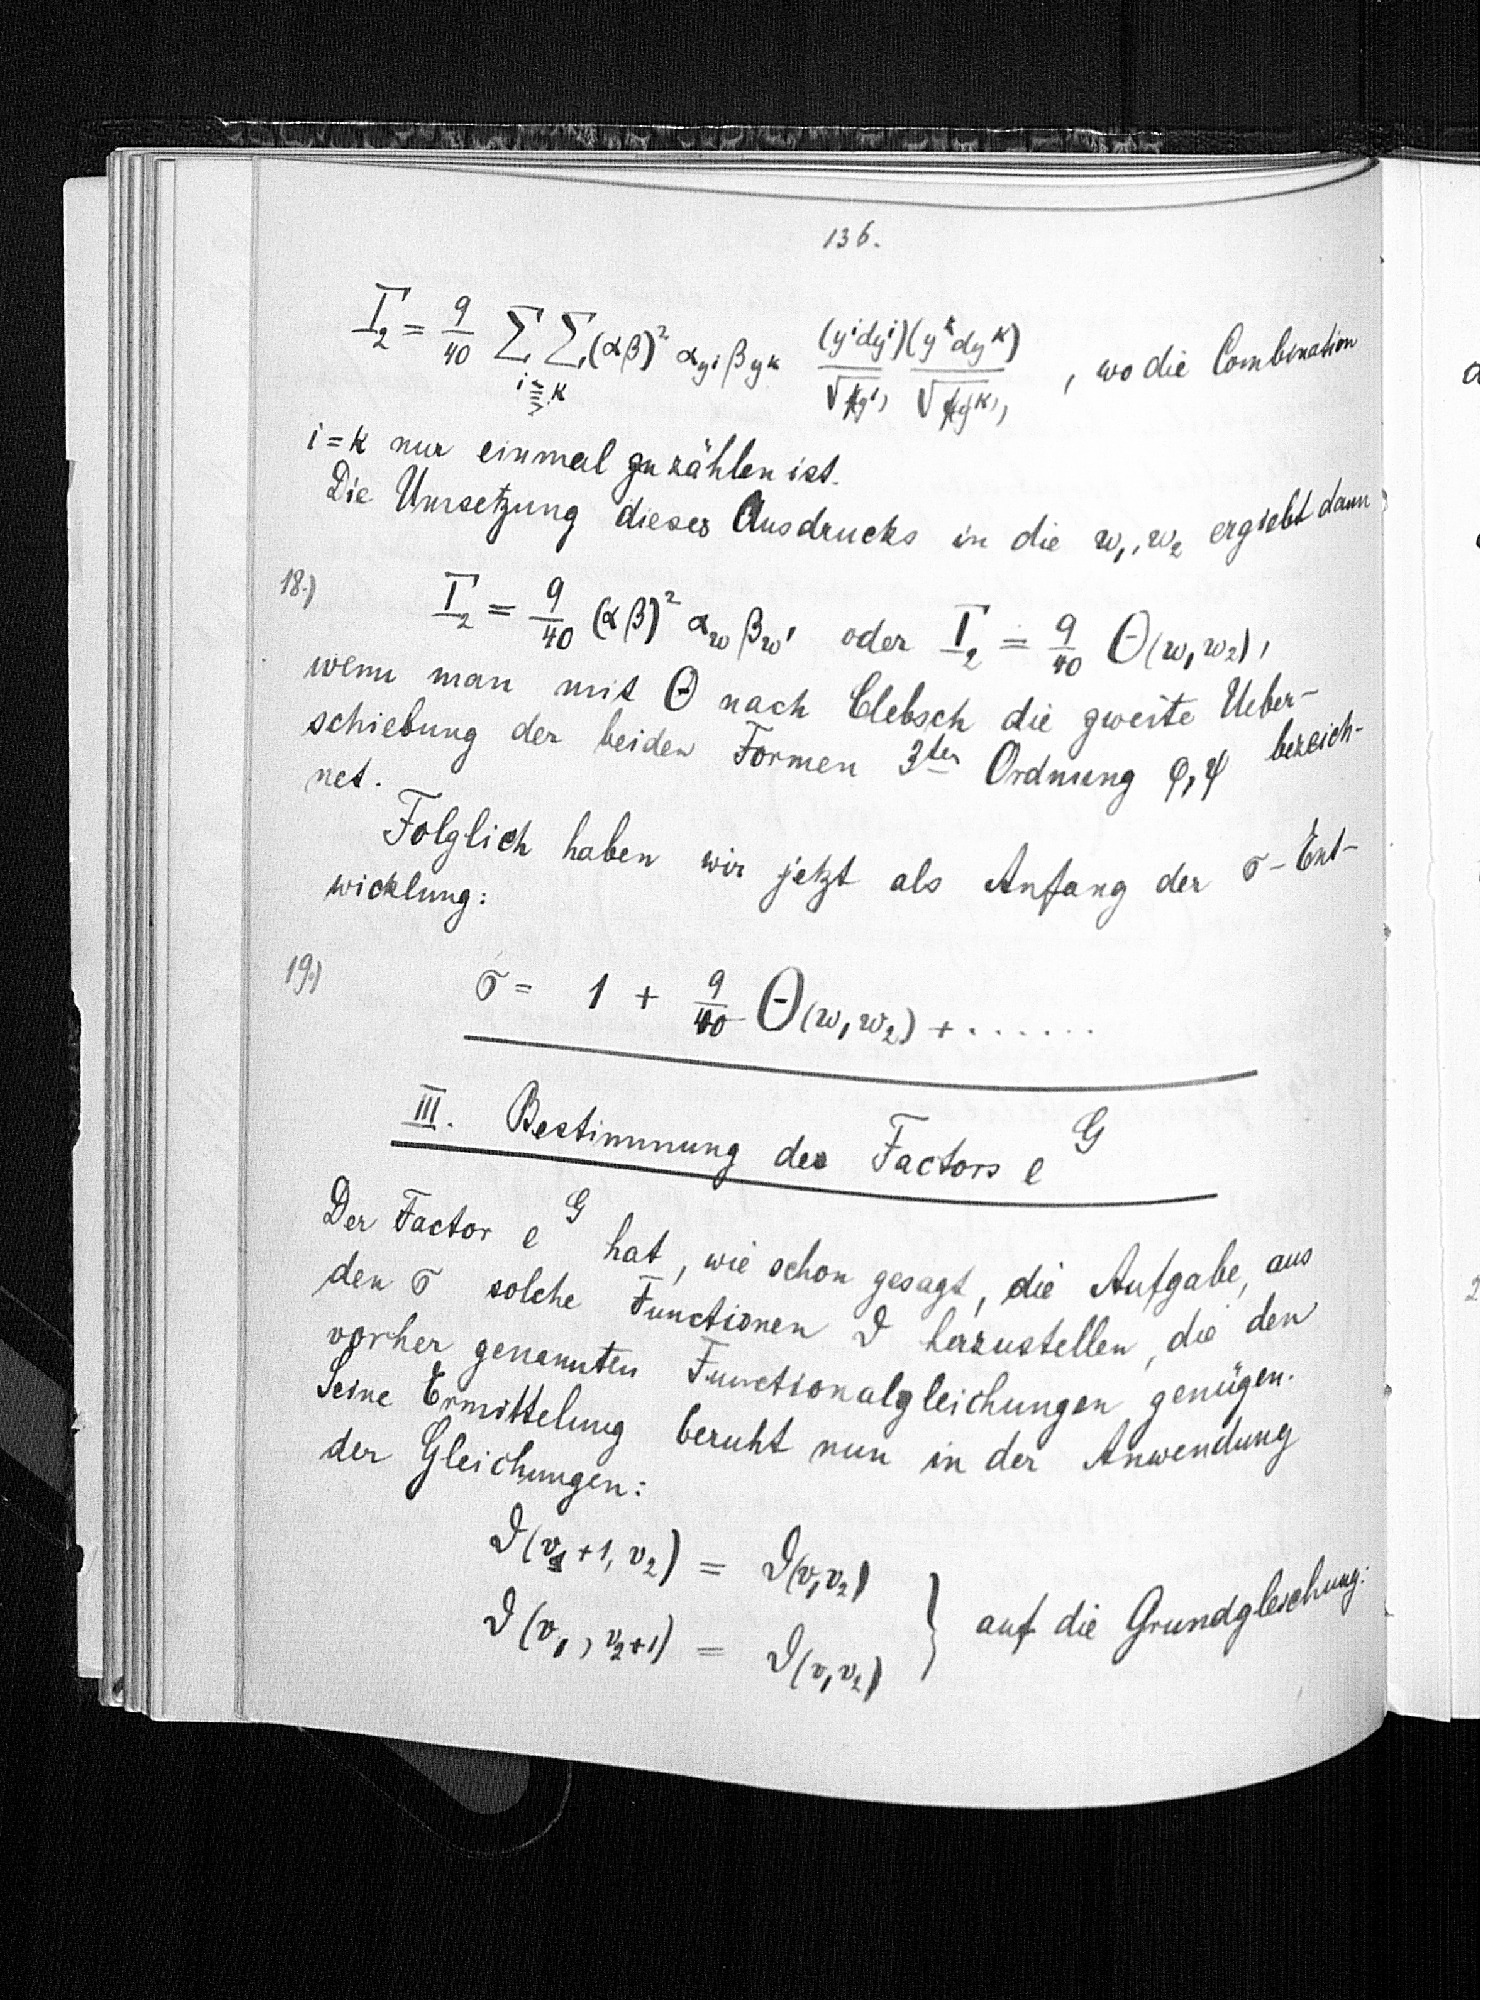 136.
Γ₂ = 9/40 ∑ ∑ (αβ)² α_{yⁱ} β_{yᵏ} (yⁱdyⁱ)(yᵏdyᵏ) / √f(yⁱ) √f(yᵏ) , wo die Combination
i ≦ k
i = k nur einmal zu zählen ist.
Die Umsetzung dieses Ausdrucks in die w₁, w₂ ergiebt dann
18.) Γ₂ = 9/40 (αβ)² α_w β_w, oder Γ₂ = 9/40 Θ(w₁ w₂),
wenn man mit Θ nach Clebsch die zweite Ueber-
schiebung der beiden Formen 3ter Ordnung φ, ψ bezeich-
net.
Folglich haben wir jetzt als Anfang der σ-Ent-
wicklung:
19.) σ = 1 + 9/40 Θ(w₁ w₂) + ......
III. Bestimmung des Factors e^G
Der Factor e^G hat, wie schon gesagt, die Aufgabe, aus
den σ solche Functionen ϑ herzustellen, die den
vorher genannten Functionalgleichungen genügen.
Seine Ermittelung beruht nun in der Anwendung
der Gleichungen:
ϑ(v₁+1, v₂) = ϑ(v₁ v₂)
ϑ(v₁, v₂+1) = ϑ(v₁ v₂) } auf die Grundgleichung: